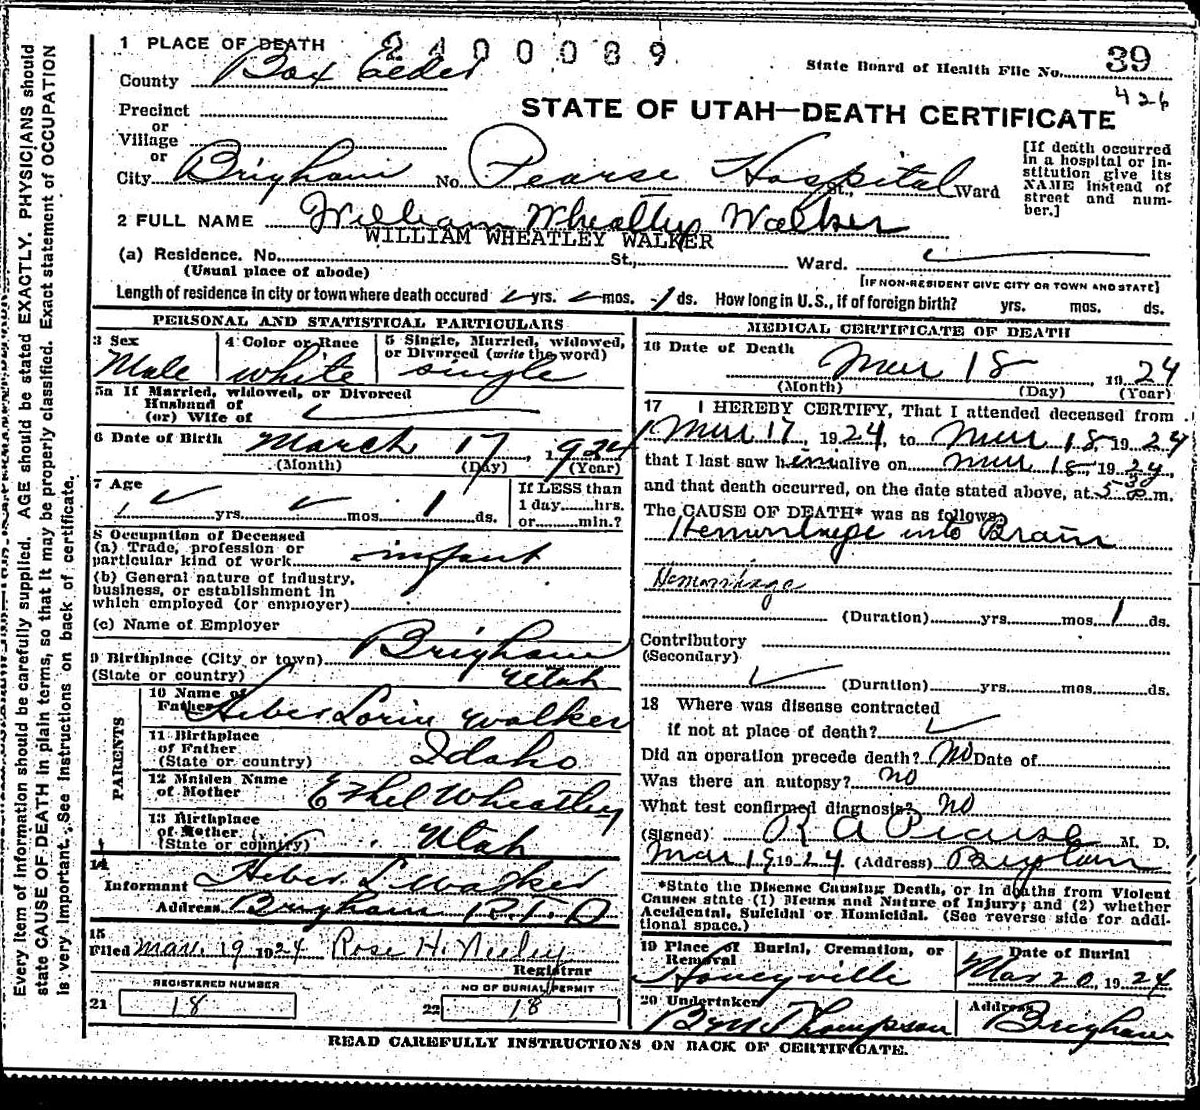 Every item of information should be carefully supplied. AGE should be stated EXACTLY. PHYSICIANS should
state CAUSE OF DEATH in plain terms, so that it may be properly classified. Exact statement of OCCUPATION
is very important. See instructions on back of certificate.
1 PLACE OF DEATH 2400089
State Board of Health File No. 39
426
County Box Elder
STATE OF UTAH—DEATH CERTIFICATE
Precinct
or
Village
or
City Brigham No. Pearse Hospital St., Ward
[If death occurred
in a hospital or in-
stitution give its
NAME instead of
street and num-
ber.]
2 FULL NAME William Wheatley Walker
WILLIAM WHEATLEY WALKER
(a) Residence. No. St., Ward.
(Usual place of abode) [IF NON-RESIDENT GIVE CITY OR TOWN AND STATE]
Length of residence in city or town where death occured yrs. mos. 1 ds. How long in U.S., if of foreign birth? yrs. mos. ds.
PERSONAL AND STATISTICAL PARTICULARS
3 Sex
Male
4 Color or Race
white
5 Single, Married, widowed,
or Divorced (write the word)
single
5a If Married, widowed, or Divorced
Husband of
(or) Wife of
6 Date of Birth March 17, 1924
(Month) (Day) (Year)
7 Age
yrs. mos. 1 ds.
If LESS than
1 day......hrs.
or......min.?
8 Occupation of Deceased
(a) Trade, profession or
particular kind of work infant
(b) General nature of industry,
business, or establishment in
which employed (or employer)
(c) Name of Employer
9 Birthplace (City or town) Brigham
(State or country) Utah
PARENTS
10 Name of
Father Heber Lorin Walker
11 Birthplace
of Father
(State or country) Idaho
12 Maiden Name
of Mother Ethel Wheatley
13 Birthplace
of Mother
(State or country) Utah
14
Informant Heber L Walker
Address Brigham R.F.D
15
Filed Mar. 19 1924 Rose H. Neeley
Registrar
REGISTERED NUMBER
21 18
NO OF BURIAL PERMIT
22 18
MEDICAL CERTIFICATE OF DEATH
16 Date of Death Mar 18, 1924
(Month) (Day) (Year)
17 I HEREBY CERTIFY, That I attended deceased from
Mar 17, 1924, to Mar 18, 1924
that I last saw him alive on Mar 18, 1924
and that death occurred, on the date stated above, at 5 30 m.
The CAUSE OF DEATH* was as follows:
Hemorrhage into Brain
Hemorrhage
(Duration) yrs. mos. 1 ds.
Contributory
(Secondary)
(Duration) yrs. mos. ds.
18 Where was disease contracted
if not at place of death?
Did an operation precede death? No Date of
Was there an autopsy? no
What test confirmed diagnosis? no
(Signed) R A Pearse M. D.
Mar 19 1924 (Address) Brigham
*State the Disease Causing Death, or in deaths from Violent
Causes state (1) Means and Nature of Injury; and (2) whether
Accidental, Suicidal or Homicidal. (See reverse side for addi-
tional space.)
19 Place of Burial, Cremation, or
Removal
Honeyville
Date of Burial
Mar 20, 1924
20 Undertaker
Thompson
Address
Brigham
READ CAREFULLY INSTRUCTIONS ON BACK OF CERTIFICATE.